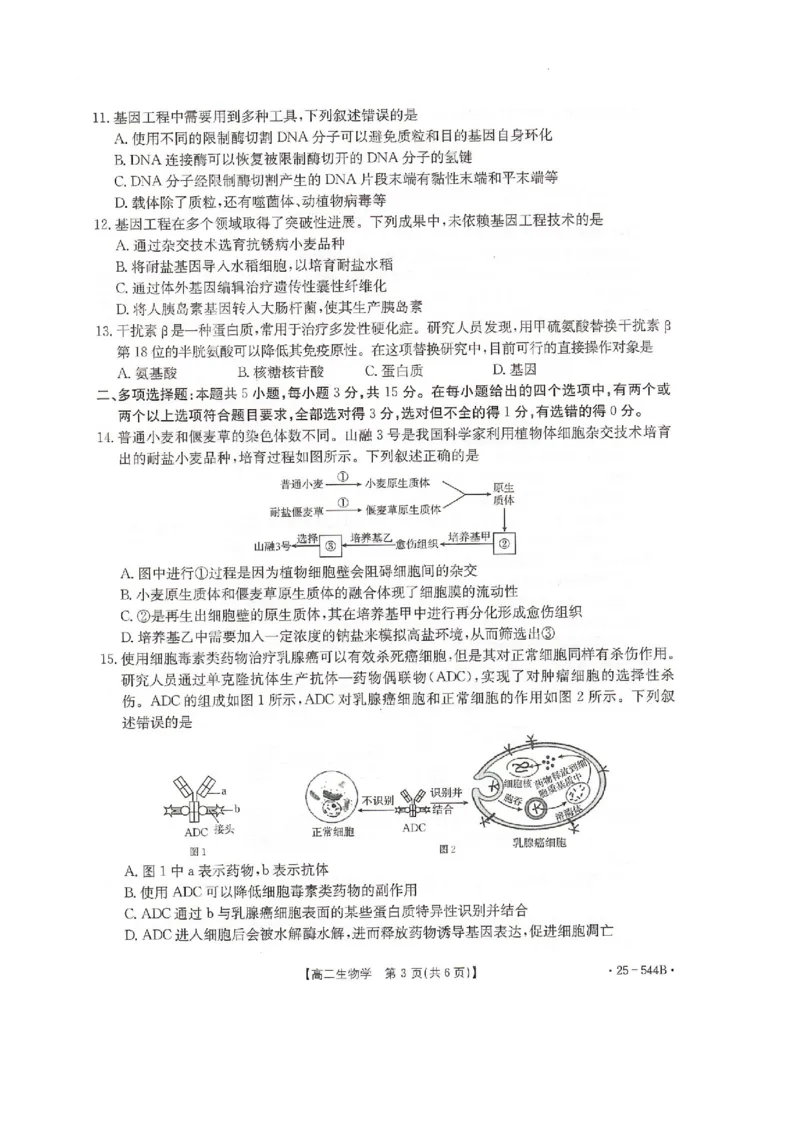 11. 基因工程中需要用到多种工具,下列叙述错误的是
A. 使用不同的限制酶切割 DNA 分子可以避免质粒和目的基因自身环化
B. DNA 连接酶可以恢复被限制酶切开的 DNA 分子的氢键
C. DNA 分子经限制酶切割产生的 DNA 片段末端有黏性末端和平末端等
D. 载体除了质粒,还有噬菌体、动植物病毒等
12. 基因工程在多个领域取得了突破性进展。下列成果中,未依赖基因工程技术的是
A. 通过杂交技术选育抗锈病小麦品种
B. 将耐盐基因导入水稻细胞,以培育耐盐水稻
C. 通过体外基因编辑治疗遗传性囊性纤维化
D. 将人胰岛素基因转入大肠杆菌,使其生产胰岛素
13. 干扰素 β 是一种蛋白质,常用于治疗多发性硬化症。研究人员发现,用甲硫氨酸替换干扰素 β
第 18 位的半胱氨酸可以降低其免疫原性。在这项替换研究中,目前可行的直接操作对象是
A. 氨基酸 B. 核糖核苷酸 C. 蛋白质 D. 基因
二、多项选择题:本题共 5 小题,每小题 3 分,共 15 分。在每小题给出的四个选项中,有两个或
两个以上选项符合题目要求,全部选对得 3 分,选对但不全的得 1 分,有选错的得 0 分。
14. 普通小麦和偃麦草的染色体数不同。山融 3 号是我国科学家利用植物体细胞杂交技术培育
出的耐盐小麦品种,培育过程如图所示。下列叙述正确的是
普通小麦 ① 小麦原生质体
耐盐偃麦草 ① 偃麦草原生质体
原生
质体
山融3号 选择 ③ 培养基乙 愈伤组织 培养基甲 ②
A. 图中进行①过程是因为植物细胞壁会阻碍细胞间的杂交
B. 小麦原生质体和偃麦草原生质体的融合体现了细胞膜的流动性
C. ②是再生出细胞壁的原生质体,其在培养基甲中进行再分化形成愈伤组织
D. 培养基乙中需要加入一定浓度的钠盐来模拟高盐环境,从而筛选出③
15. 使用细胞毒素类药物治疗乳腺癌可以有效杀死癌细胞,但是其对正常细胞同样有杀伤作用。
研究人员通过单克隆抗体生产抗体—药物偶联物(ADC),实现了对肿瘤细胞的选择性杀
伤。ADC 的组成如图 1 所示,ADC 对乳腺癌细胞和正常细胞的作用如图 2 所示。下列叙
述错误的是
a
b
ADC 接头
图1
正常细胞
不识别
ADC
识别并
结合
细胞核
药物释放到细
胞质基质中
胞吞
溶酶体
乳腺癌细胞
图2
A. 图 1 中 a 表示药物,b 表示抗体
B. 使用 ADC 可以降低细胞毒素类药物的副作用
C. ADC 通过 b 与乳腺癌细胞表面的某些蛋白质特异性识别并结合
D. ADC 进入细胞后会被水解酶水解,进而释放药物诱导基因表达,促进细胞凋亡
【高二生物学 第 3 页(共 6 页)】
·25-544B·